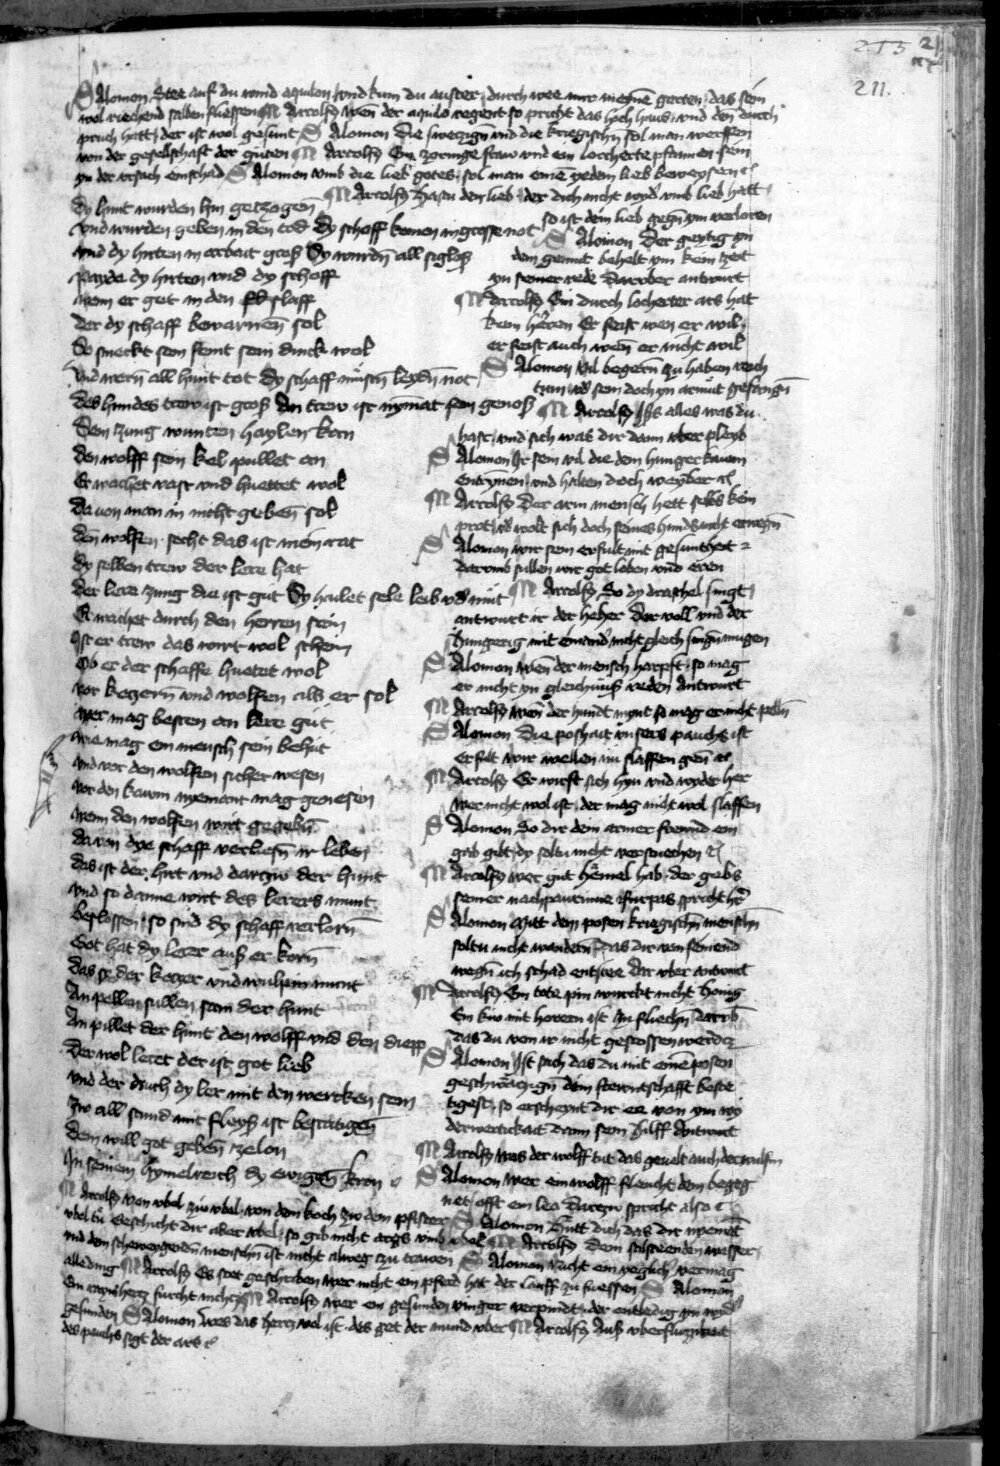 213 21
211.
Salomon Stee auf du wind aquilon vnd kum du auster durch wee mir meyne garten das sein
wol riechend salben fliessen Marcolfus wen der aquilo regent so pricht das hoch haus vnd den durch
pruch hatt der ist wol gesunt Salomon Die swetzign vnd die kriegischn sol man werffen
von der geselschaft der guten Marcolfus Ein zornige fraw vnd ein locherte pfannen sein
yn der ursach ein schad Salomon vmb die lieb gotes sol man eine yedem lieb beweysen
Marcolfus Hastu den lieb der dich nicht vmb lieb hatt
so ist dein lieb gegn ym verloren
Dy hunt wurden hin getzogen
vnd wurden geben in den tod Dy schoff komen in grosse not
vnd dy hirten in arbait groß Sy wurdn all sigloß
payde dy hirten vnd dy schoff
wem er get in den slaff
der dy schaff bewarnen sol
So smeckt sem feint sein dinck wol
vnd wern all hunt tot Dy schaff müsen leydn not
Des hundes trew ist groß An trew ist nymat sein genoß
Sein zung wunten haylen kan
den wolff sein kel pullet an
Er wachet vast vnd huettet wol
da von man in nicht geben sol
den wolfen secht das ist mein rat
dy selben trew der lere hat
der lere zung die ist gut Sy hailet sele leib vnd müt
Er wachet durch den herren sein
Ist er trew das wirt wol schein
Ob er der schaffe huetet wol
vor kezern vnd wolfen als er sol
wer mag besten an lere gut
wie mag ein mensch sein behut
vnd vor den wolfen sicher wesen
vor den kawm nyemant mag genesen
wenn den wolfen wirt gegebn
da von dye schaff verliesn ir leben
das ist der hirt vnd darzw der hunt
vnd so danne wirt des lerers munt
beslossen so sind dy schaff verlorn
Got hat dy lerer auß er korn
das sy der kezer vnd wulpim munt
An pellen sullen sam der hunt
An pillet der hunt den wolff vnd den diepp
Der wol leret der ist got lieb
vnd der durch dy ler mit den wercken sein
zw all stund mit fleyß ist bestatigen
dem will got geben zelon
In seinem hymelreich dy ewigen kron
Salomon Der geytig yn
dem gemut behelt ym kein zeit
yn seiner rede Darober antwurt
Marcolfus Ein durch locherter ars hat
kein herren Er feist wen er wil
er feist auch wen er nicht wil
Salomon vil begern zu haben reich
tum sein doch yn armut gefangn
Marcolfus Iss alles was du
hast vnd sich was dir dann vber pleyb
Salomon Ir sein vil die dem hunger kawm
entrynen vnd halten doch weyber
Marcolfus Der arm mensch hett selbs kein
prot vnd wolt sich doch seines hunds nicht erwegn
Salomon wir sein erfult mit gesuntheit
Darumb sullen wir got loben vnd eren
Marcolfus So dy draschel singt
antwurt ir der heher Der voll vnd der
hungerig mit einand nicht gleich singn mugen
Salomon wen der mensch harpft so mag
er nicht yn gleichnus reden Antwurt
Marcolfus wen der hundt so mag er nicht pelln
Salomon Die poshait vnsers pauchs ist
erfult wir wellen nu slaffen gen
Marcolfus Er wirft sich hyn vnd wyder her
wer nicht wol ist der mag nicht wol slaffen
Salomon So dir dein armer freund ein
gab gibt dy soltu nicht versmechen
Marcolfus wer gut hab der gebs
seiner nachpaurinne spricht
Salomon Mitt dem posen kriegischn menschn
soltu nicht wandern das dir von seinend
wegn ich schad entstee Dar vber antwurt
Marcolfus Ein tote pin wurckt nicht honig
Ein ku mit hoeren ist zu fliechn darub
das du von ir nicht gestossen werdest
Salomon Ist sach das du mit eine posen
geselschafft beste
tigest so erscheynt dir ee von ym wy
derwertickait dann sein hilff Antwurt
Marcolfus was der wolff tut das gevelt auch der wulfin
Salomon wer ein wolff fleucht dem begeg
net offt ein leo Darzw spricht also
Marcolfus von vbel zw vbel von dem koch zw dem pfister Salomon Hutt dich das dir nyemat
vbel tu Geschicht dir aber vbel so gib nicht args vmb vbel Marcolfus Dem stilsteenden wasser
vnd den schweigenden menschn ist nicht alweg tzu trawen Salomon Nicht ein yeglich vermag
alleding Marcolfus Es stet geschriben wer nicht ein pferd hat der lauff zu fuessen Salomon
Ein rayns hertz furcht nichcz Marcolfus wer ein gesunden vinger verpindt der entledig yn wyd
gesunden Salomon Wes das hercz vol ist des get der mund vber Marcolfus Auß vberfluzikait
des pauchs sigt der ars